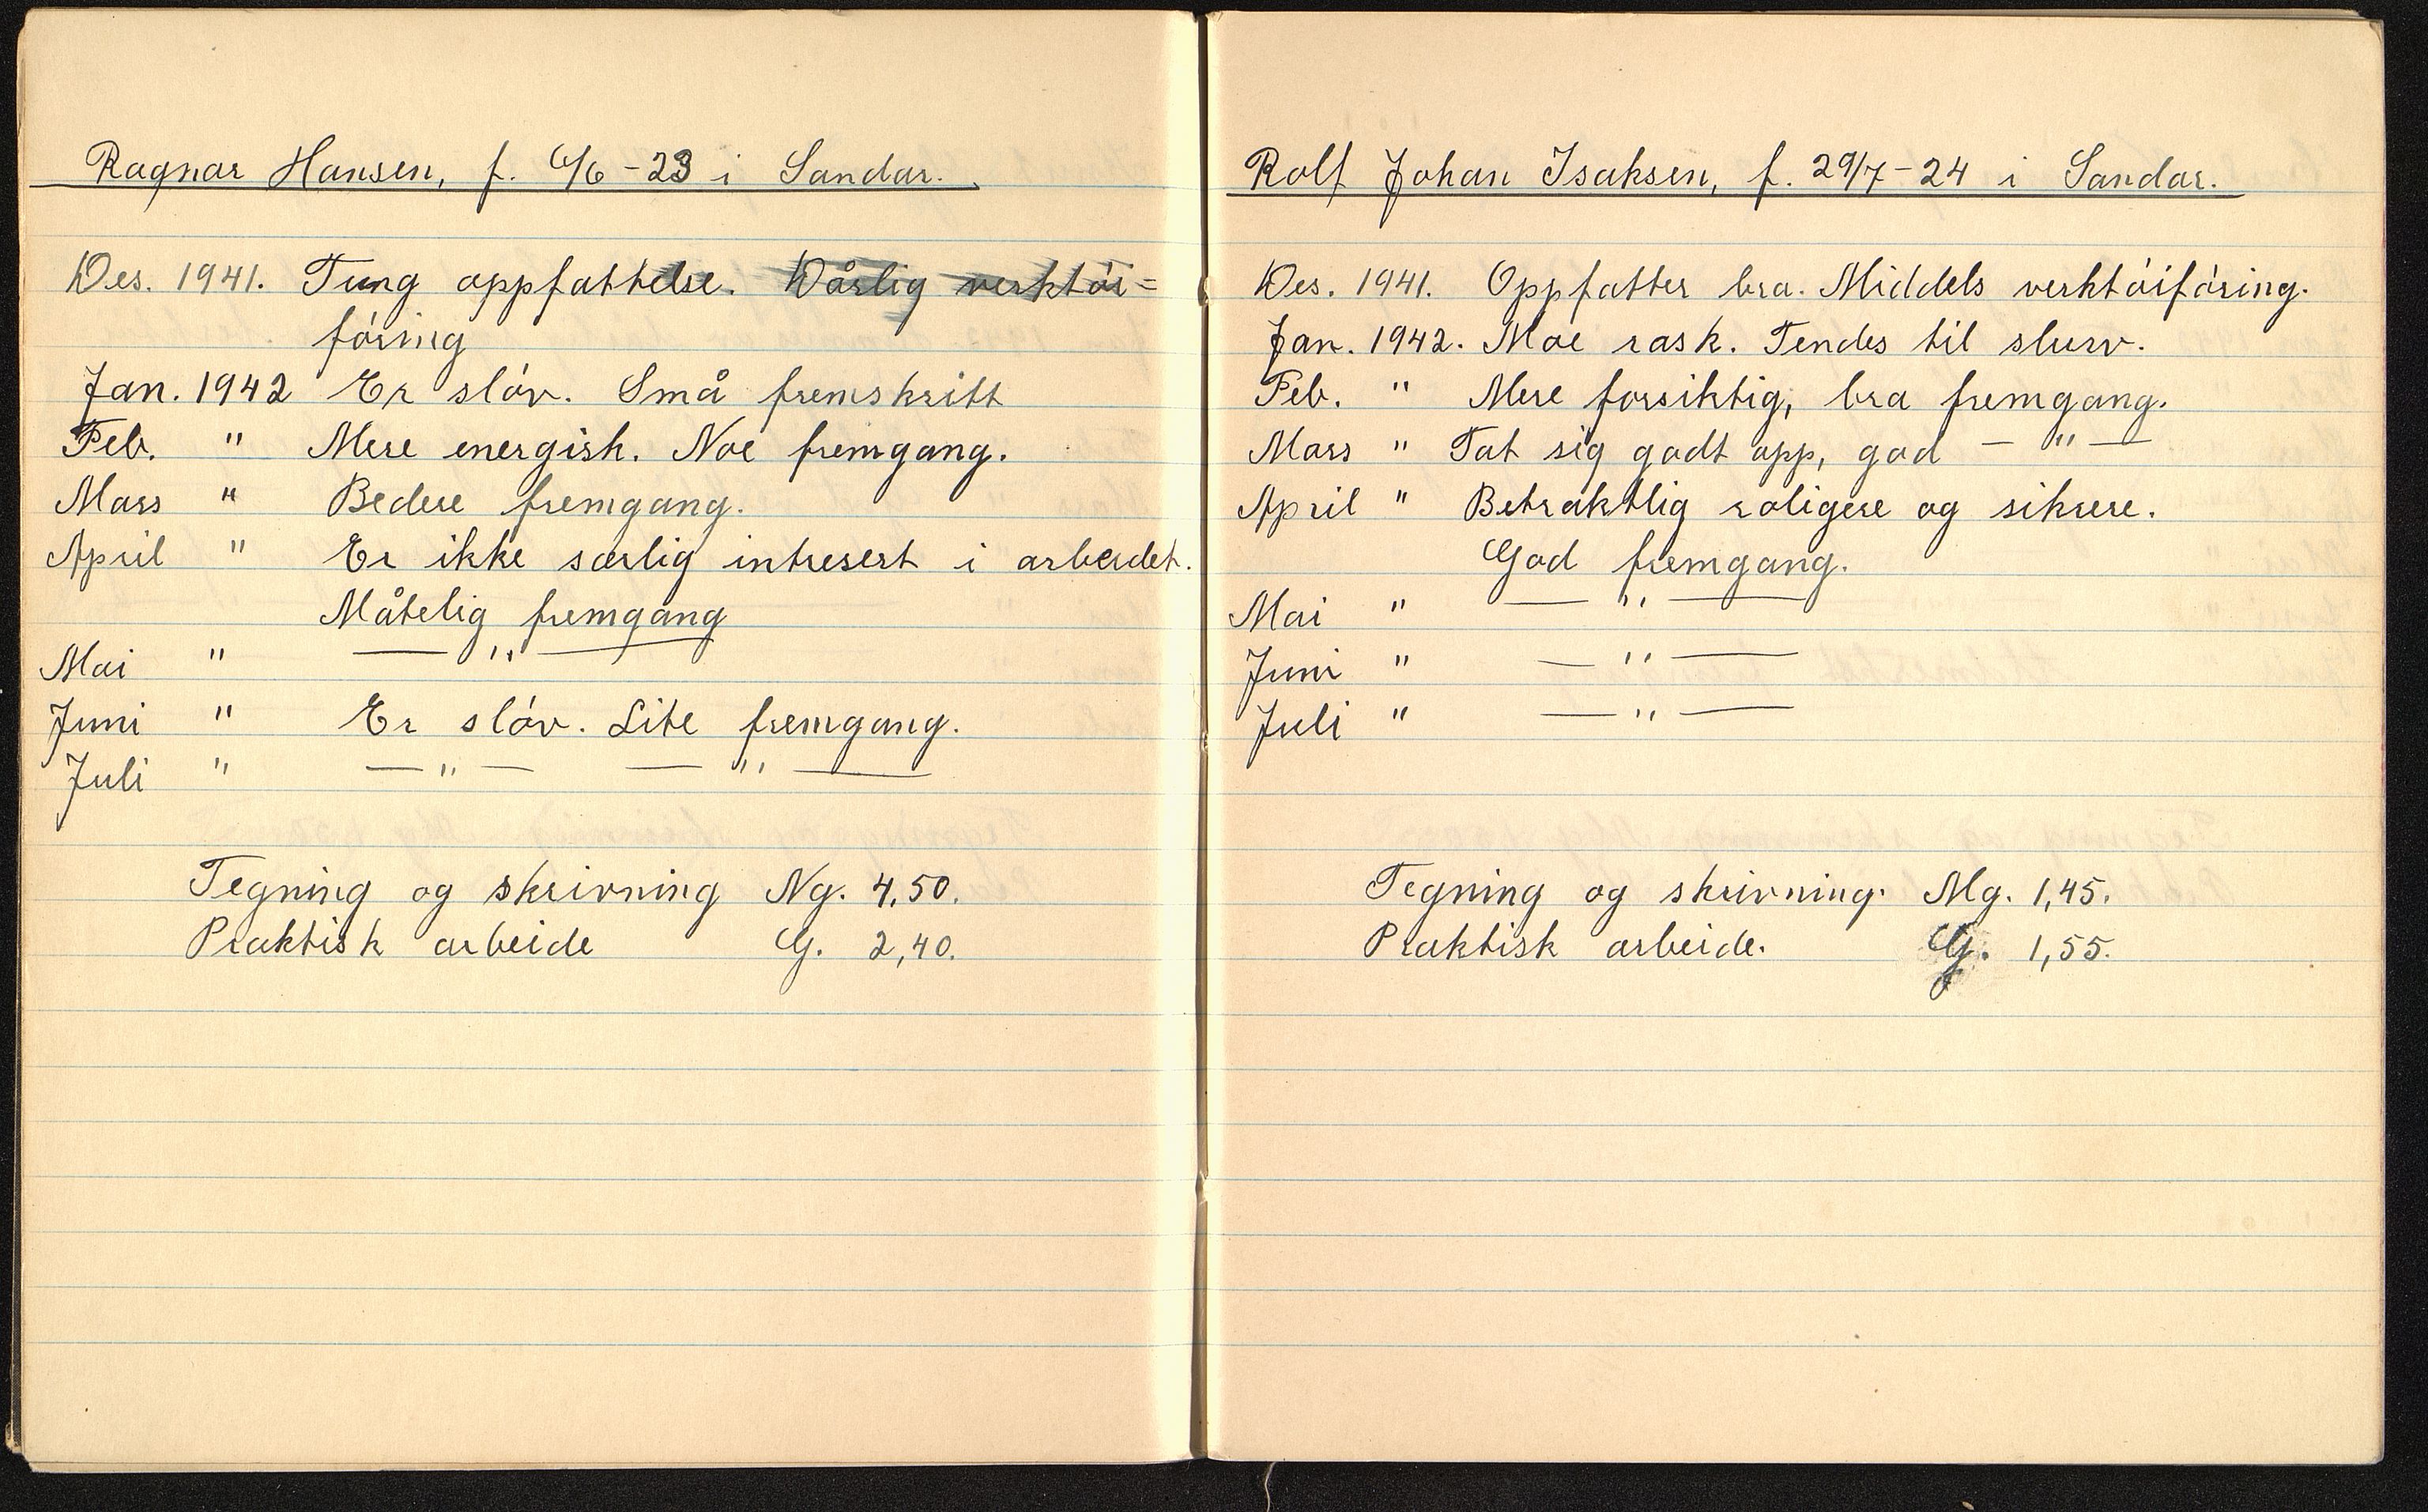 Ragnar Hansen, f. 6/6-23 i Sandar.
Des. 1941. Tung oppfattelse. Dårlig verktói=
fóring
Jan. 1942 Er slóv. Små fremskritt
Feb. " Mere energisk. Noe fremgang.
Mars " Bedere fremgang.
April " Er ikke særlig intresert i arbeidet.
Måtelig fremgang
Mai " — " —
Juni " Er slóv. Lite fremgang.
Juli " — " — — " —
Tegning og skrivning Ng. 4,50.
Praktisk arbeide G. 2,40.
Rolf Johan Isaksen, f. 29/7-24 i Sandar.
Des. 1941. Oppfatter bra. Middels verktóifóring.
Jan. 1942. Noe rask. Tendes til slurv.
Feb. " Mere forsiktig, bra fremgang.
Mars " Tat sig godt opp, god — " —
April " Betraktlig roligere og sikrere.
God fremgang.
Mai " — " —
Juni " — " —
Juli " — " —
Tegning og skrivning. Mg. 1,45.
Praktisk arbeide. G. 1,55.